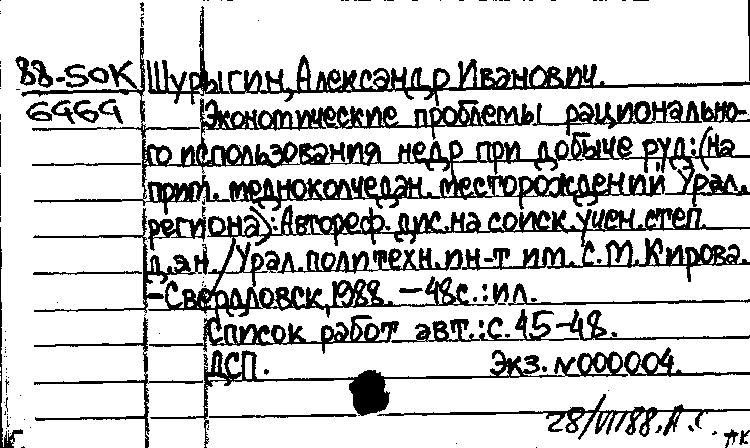 88-50К Шурыгин, Александр Иванович.
6969 Экономические проблемы рационально-
го использования недр при добыче руд: (На
прим. медноколчедан. месторождений Урал.
региона): Автореф. дис. на соиск. учен. степ.
д.э.н. / Урал. политехн. ин-т им. С.М. Кирова.
- Свердловск, 1988. - 48 с.: ил.
Список работ авт.: с. 45-48.
ДСП. Экз. N000004.
28/VI 88. А.С.